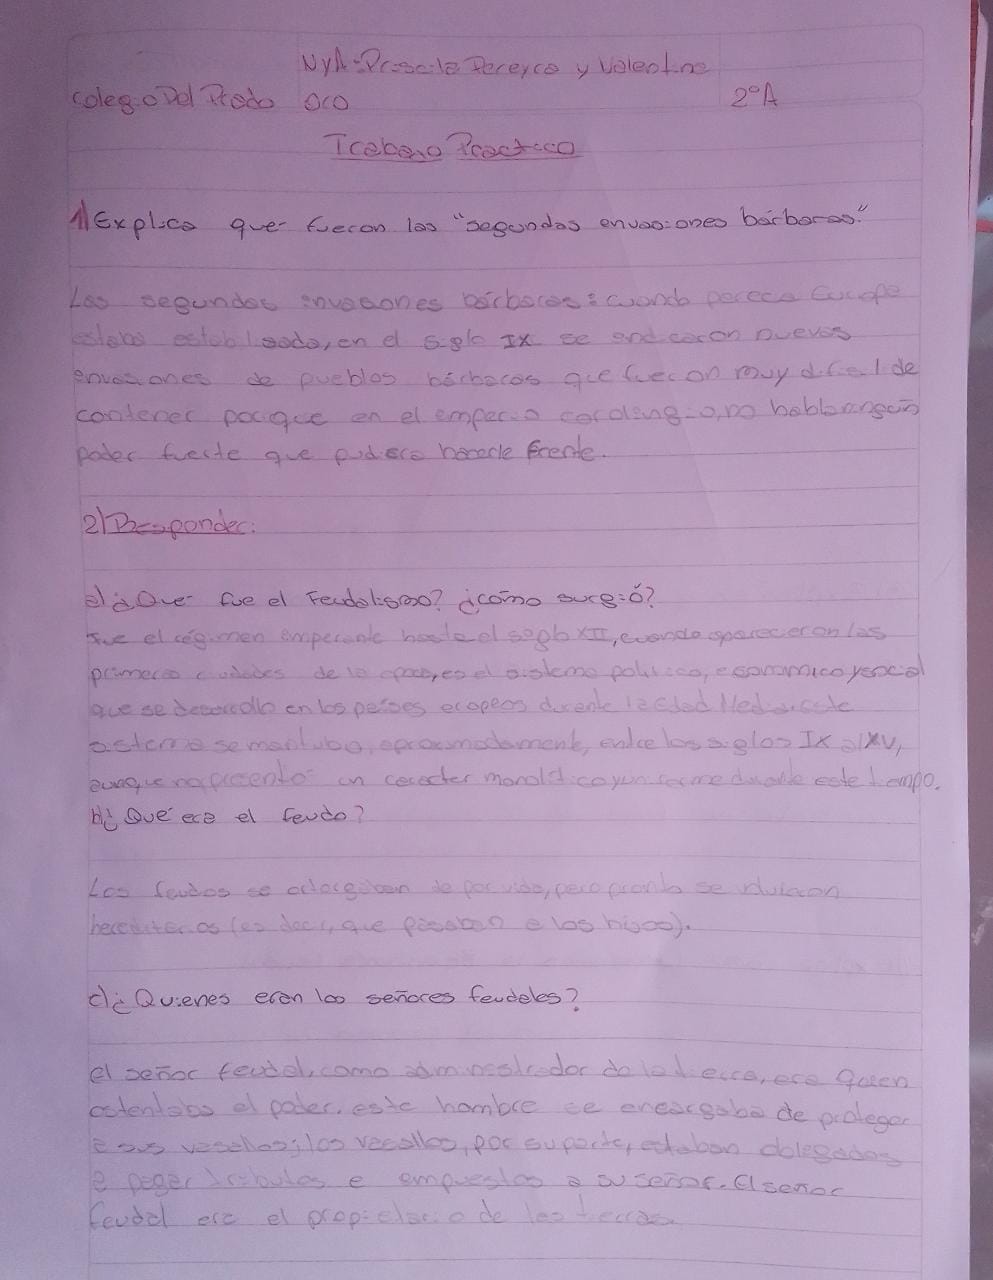 NyA: Priscila Pereyra y Valentino
Colegio Del Prado oro 2ºA
Trabajo Practico
1) Explica que fueron las "segundas envasiones bárbaras."
Las segundas invasiones bárbaras: cuando parecía Europa
estaba establisada, en el siglo IX se endicaron nuevas
envasiones de pueblos bárbaros que fueron muy dificil de
contener porque en el emperio carolingio, no habia ningún
poder fuerte que pudiera hacerle frente.
2) Responder:
a) ¿Que fue el Feudalismo? ¿cómo surgió?
Fue el régimen imperante hasta el siglo XII, cuando aparecieron las
primeras ciudades de la epoca, es el sistema politico, economico y social
que se desarrollo en los países eropeos durante la edad Media. este
sistema se mantubo, aproximadamente, entre los siglos IX al XV,
aunque no presento un caracter monolitico y uniforme durante este tiempo.
b) ¿Qué era el feudo?
Los feudos se otorgaban de por vida, pero pronto se
hereditarios (es decir, que pasaban a los hijos).
c) ¿Quienes eran los señores feudales?
el señor feudal, como administrador de la tierra, era quien
ostentaba el poder. este hombre se encargaba de proteger
a sus vasallos; los vasallos, por su parte, estaban oblegados
a pagar tributos e empuestos a su señor. El señor
feudal era el propietario de las tierras.